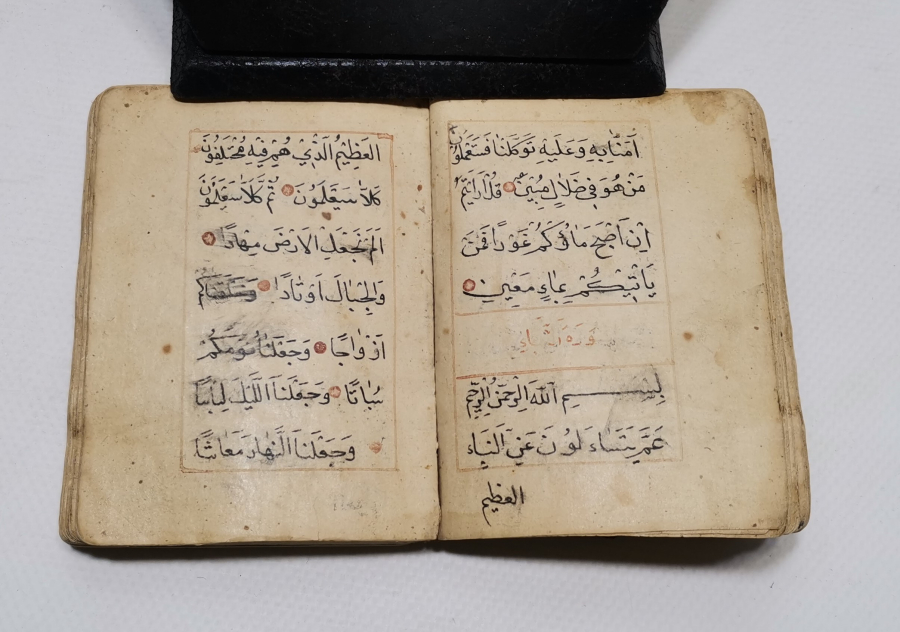 اٰمَنَّا بِهِ وَعَلَيْهِ تَوَكَّلْنَا فَسَتَعْلَمُونَ
مَنْ هُوَ فِي ضَلَالٍ مُبِينٍ قُلْ اَرَاَيْتُمْ
اِنْ اَصْبَحَ مَاؤُكُمْ غَوْرًا فَمَنْ
يَاْتِيكُمْ بِمَاءٍ مَعِينٍ
سورة
بِسْمِ اللهِ الرَّحْمٰنِ الرَّحِيمِ
عَمَّ يَتَسَاءَلُونَ عَنِ النَّبَاِ
العظيم
العَظِيمِ الَّذِي هُمْ فِيهِ مُخْتَلِفُونَ
كَلَّا سَيَعْلَمُونَ ثُمَّ كَلَّا سَيَعْلَمُونَ
اَلَمْ نَجْعَلِ الْاَرْضَ مِهَادًا
وَالْجِبَالَ اَوْتَادًا وَخَلَقْنَاكُمْ
اَزْوَاجًا وَجَعَلْنَا نَوْمَكُمْ
سُبَاتًا وَجَعَلْنَا اللَّيْلَ لِبَاسًا
وَجَعَلْنَا النَّهَارَ مَعَاشًا